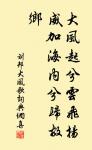 大風起兮雲飛揚
威加海內兮歸故
鄉
劉邦大風歌詞典網喜